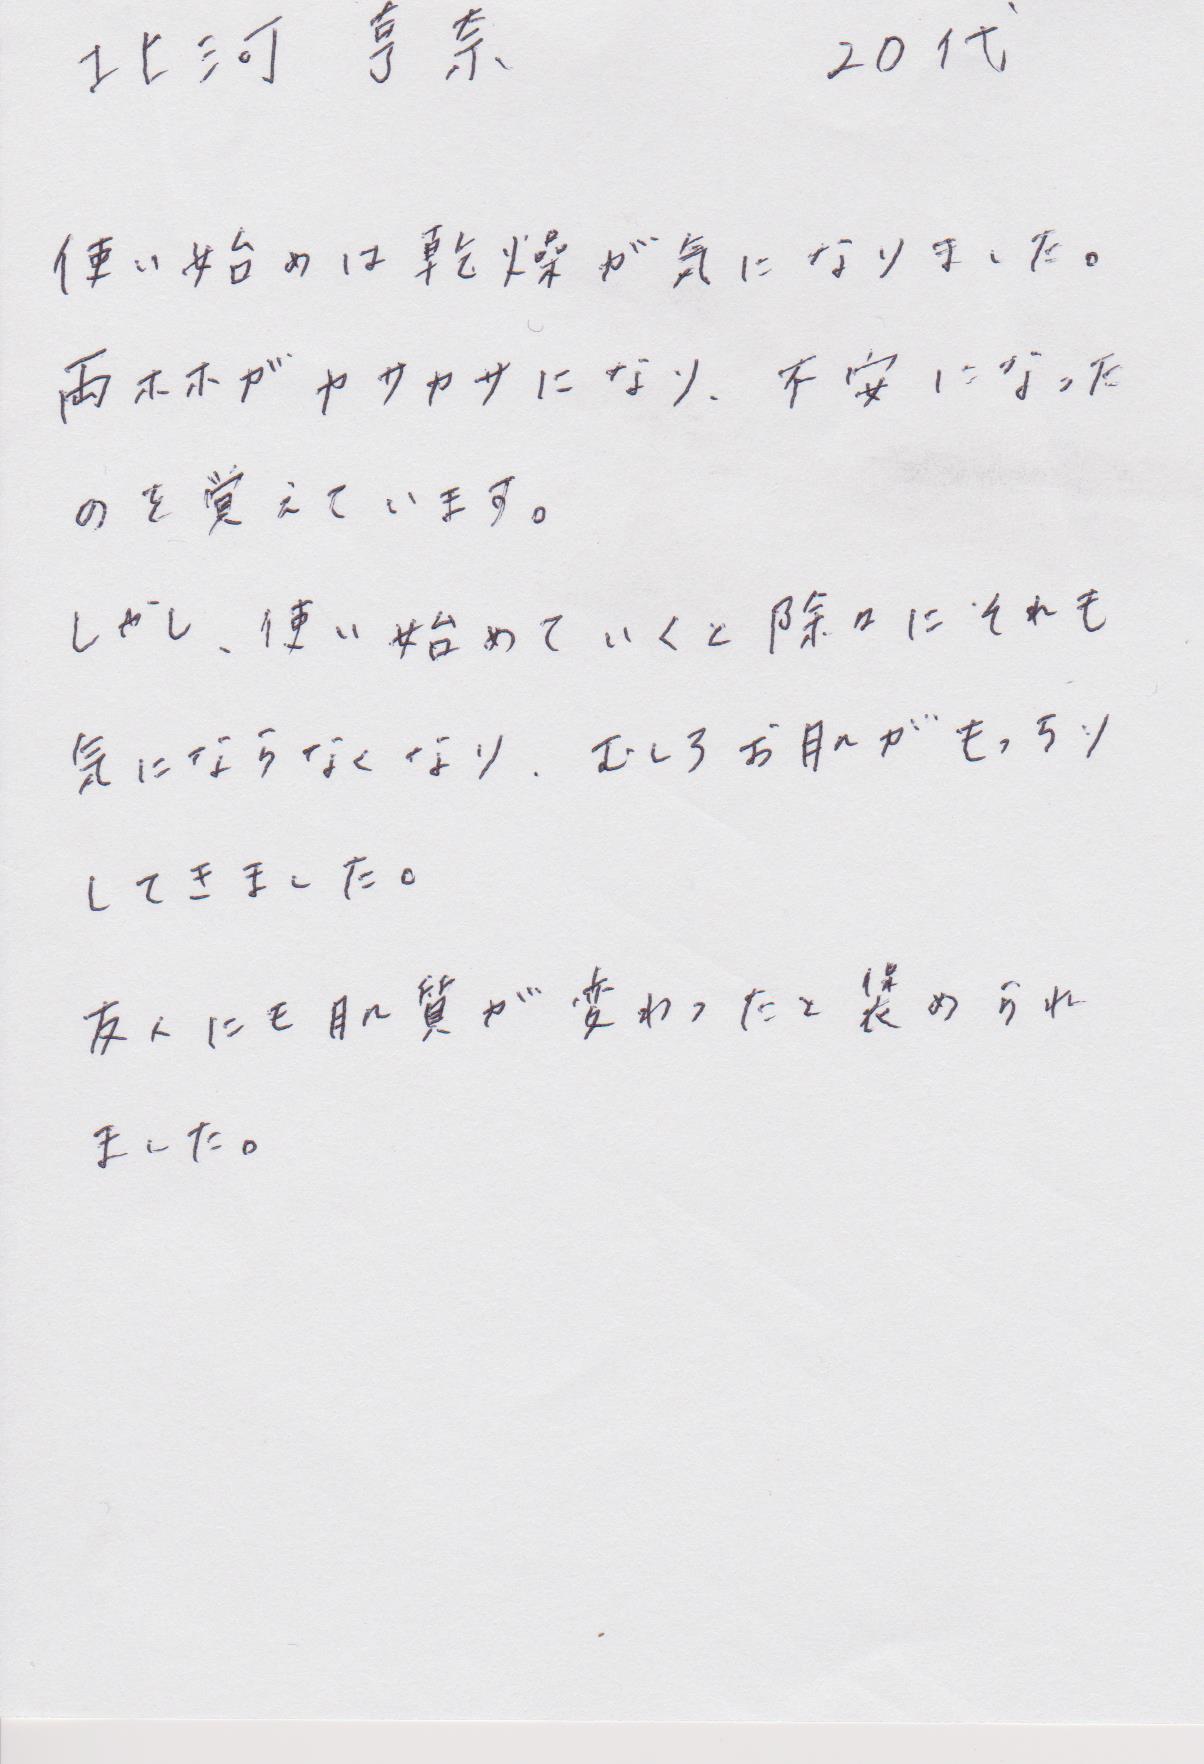 北河 享奈 20代
使い始めは乾燥が気になりました。
両ホホがカサカサになり、不安になった
のを覚えています。
しかし、使い始めていくと除々にそれも
気にならなくなり、むしろお肌がもっちり
してきました。
友人にも肌質が変わったと褒められ
ました。